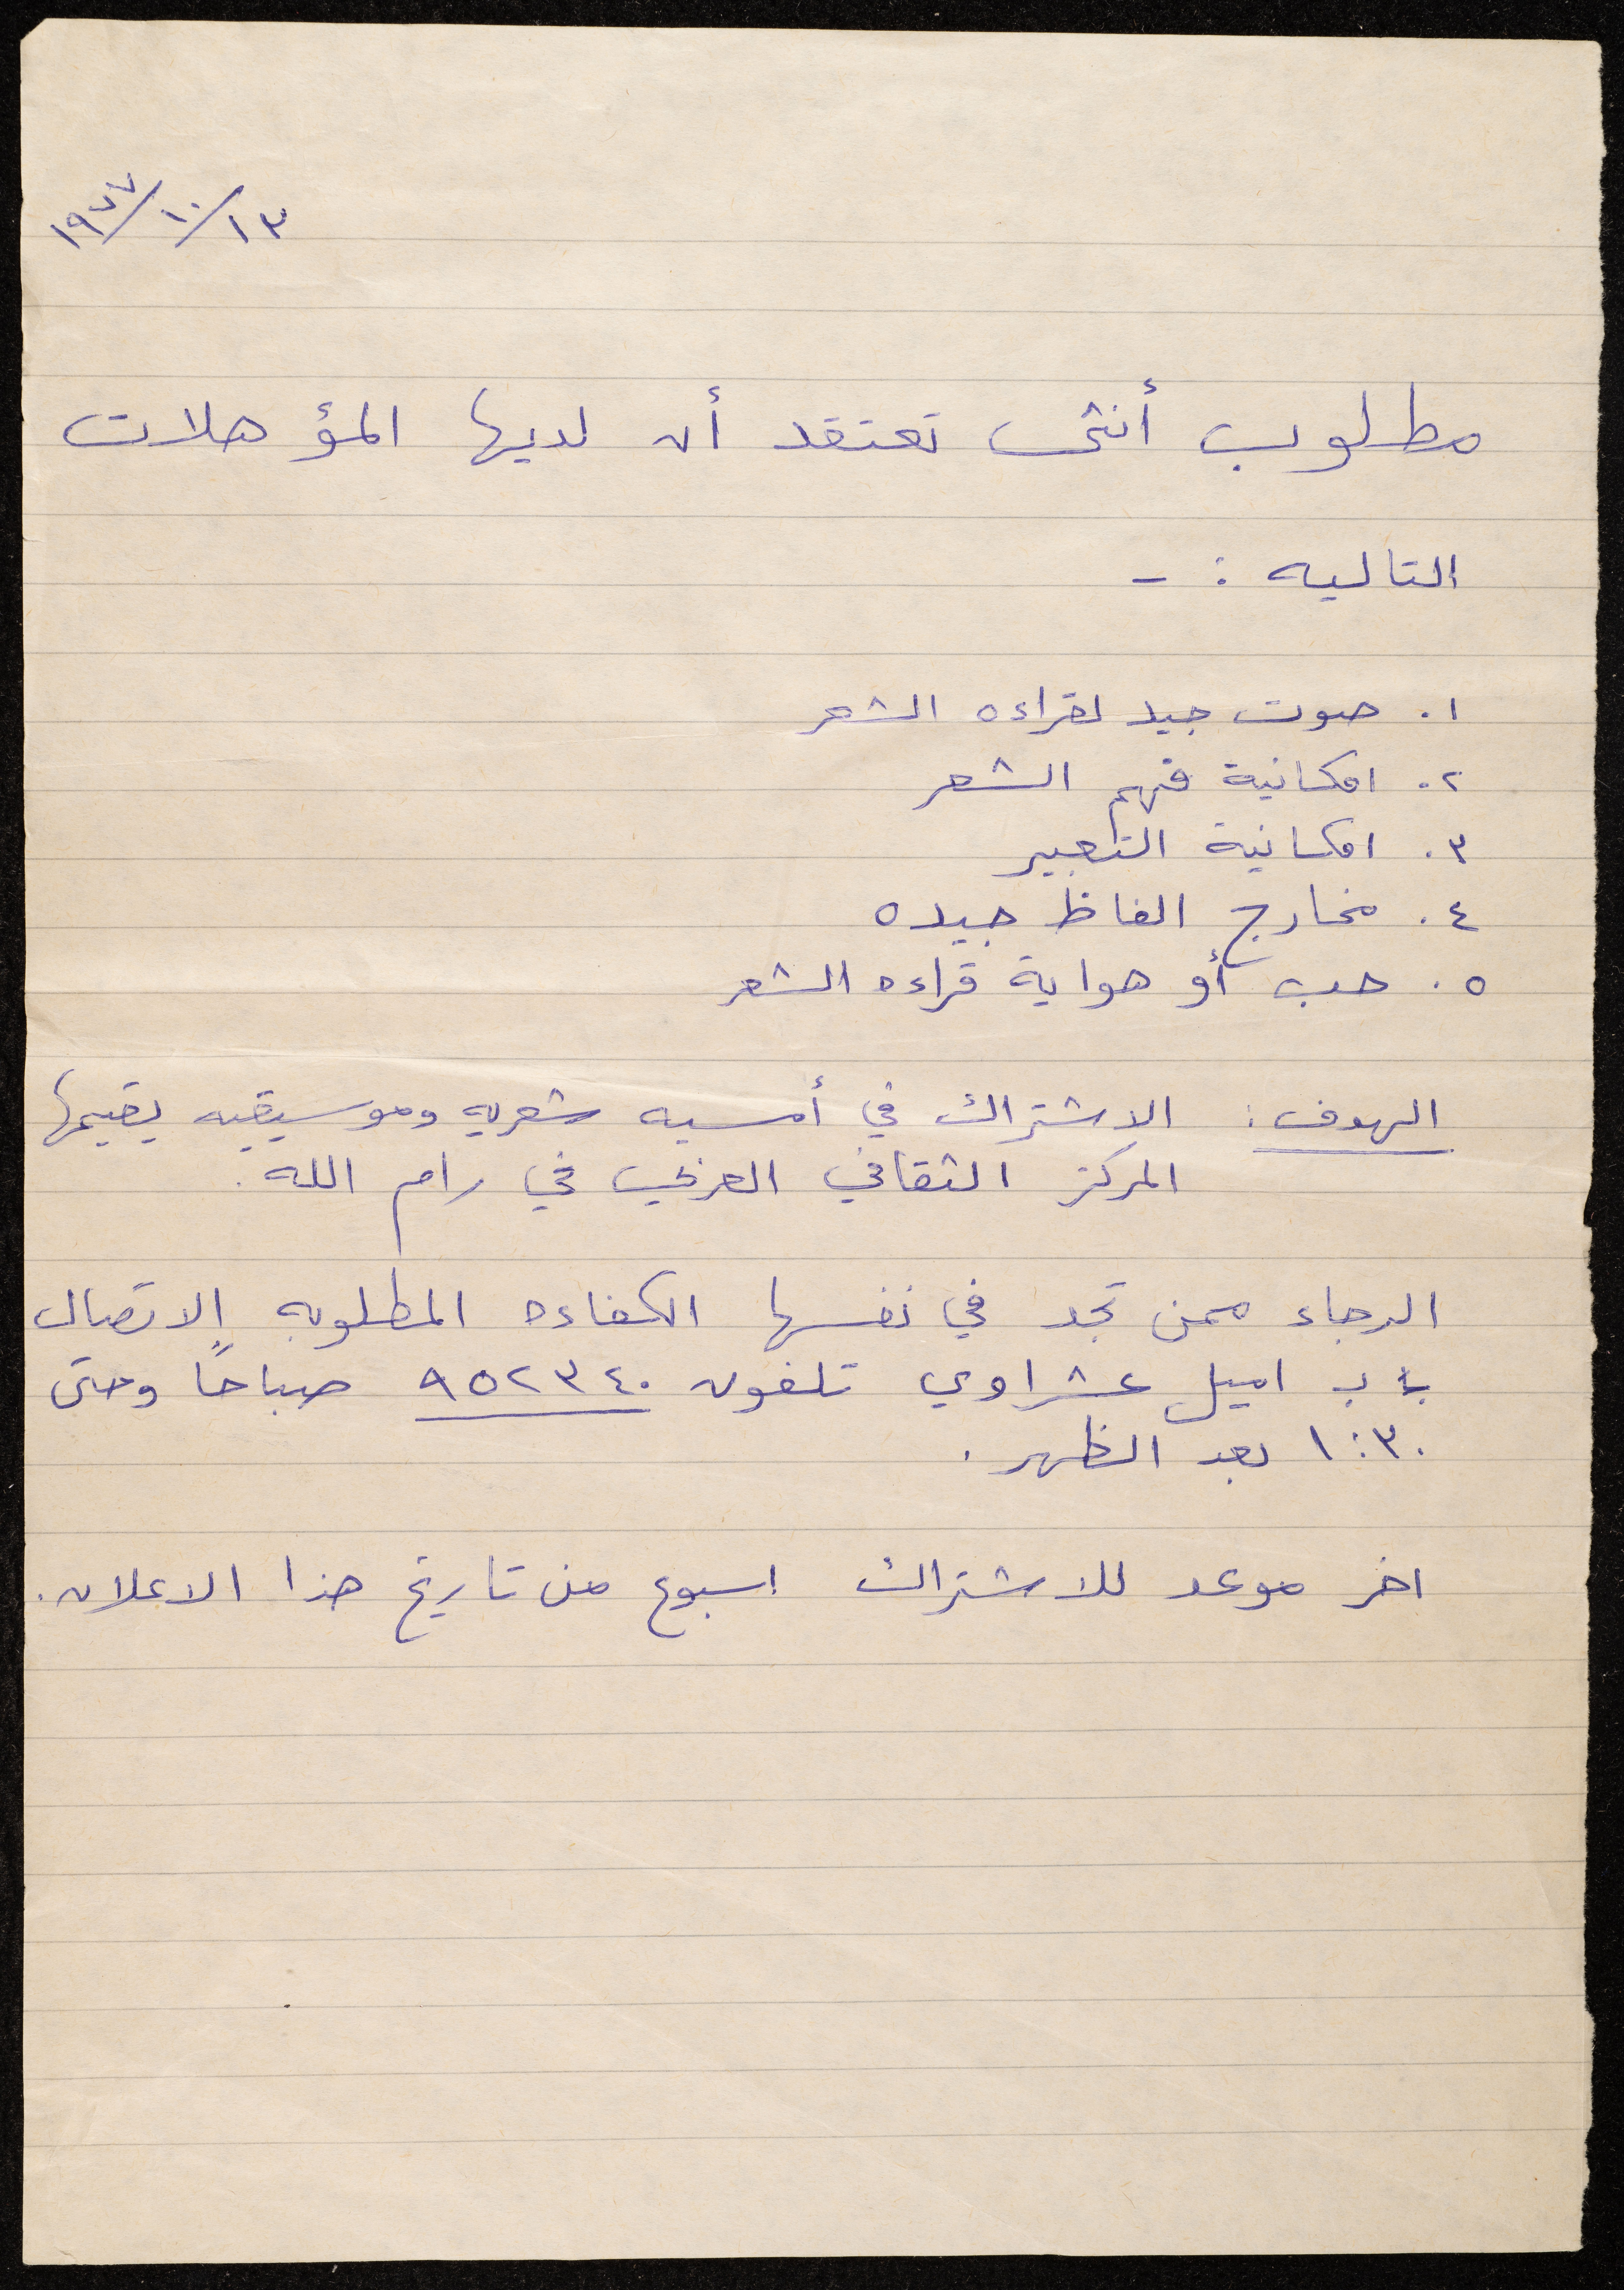 ١٣/١٠/١٩٧٧
مطلوب أنثى تعتقد أن لديها المؤهلات
التاليه : -
١. صوت جيد لقراءه الشعر
٢. امكانية فهم الشعر
٣. امكانية التعبير
٤. مخارج الفاظ جيده
٥. حب أو هواية قراءه الشعر
الهدف : الاشتراك في أمسيه شعريه وموسيقيه يقيمها
المركز الثقافي العربي في رام الله.
الرجاء ممن تجد في نفسها الكفاءه المطلوبه الاتصال
ب اميل عشراوي تلفون ٩٥٢٣٤٠ صباحاً وحتى
١:٣٠ بعد الظهر.
اخر موعد للاشتراك اسبوع من تاريخ هذا الاعلان.